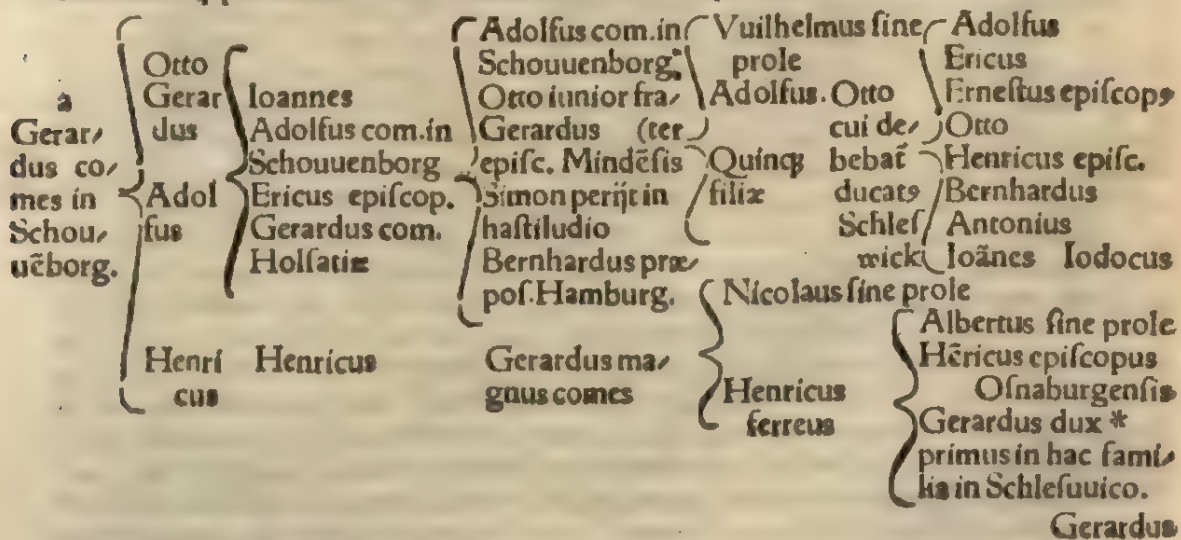 a
Gerar-
dus co-
mes in
Schou-
uẽborg.
Otto
Gerar
dus
Adol
fus
Henri
cus
Ioannes
Adolfus com. in
Schouuenborg
Ericus epiſcop.
Gerardus com.
Holſatiæ
Henricus
Adolfus com. in
Schouuenborg.
Otto iunior fra-
Gerardus (ter
epiſc. Mindẽſis
Simon perijt in
haſtiludio
Bernhardus præ-
poſ. Hamburg.
Gerardus ma-
gnus comes
Vuilhelmus ſine
prole
Adolfus. Otto
cui de-
bebat̃
ducatꝰ
Schleſ
wick
Quinqꝫ
filiæ
Nicolaus ſine prole
Henricus
ferreus
Adolfus
Ericus
Erneſtus epiſcopꝰ
Otto
Henricus epiſc.
Bernhardus
Antonius
Ioãnes Iodocus
Albertus ſine prole
Hẽricus epiſcopus
Oſnaburgenſis
Gerardus dux *
primus in hac fami-
lia in Schleſuuico.
Gerardus